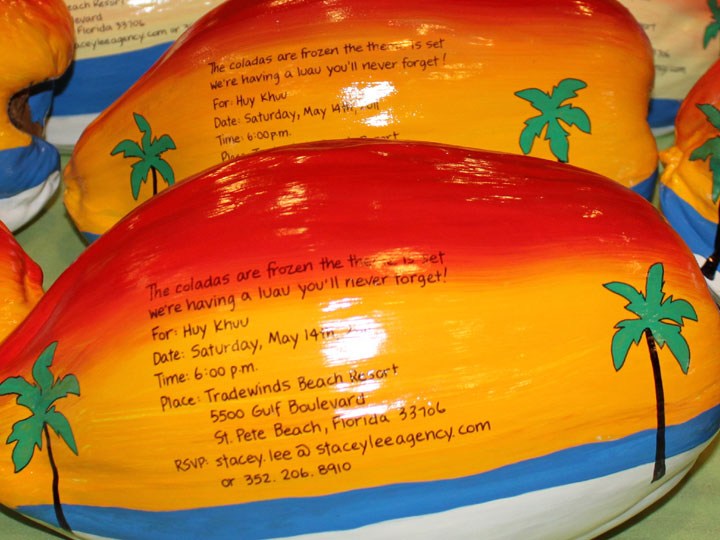 each Resort
evard
Florida 33706
aceyleeagency.com or
The coladas are frozen the theme is set
we're having a luau you'll never forget!
For: Huy Khuu
Date: Saturday, May 14th,
Time: 6:00 p.m.
The coladas are frozen the theme is set
we're having a luau you'll never forget!
For: Huy Khuu
Date: Saturday, May 14th
Time: 6:00 p.m.
Place: Tradewinds Beach Resort
5500 Gulf Boulevard
St. Pete Beach, Florida 33706
RSVP: stacey.lee@staceyleeagency.com
or 352.206.8910